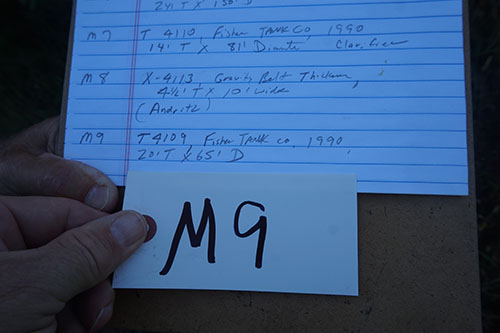 24' T X 150' D
M7 T 4110, Fisher TANK CO, 1990
14' T X 81' Diamete Clarifier
M8 X-4113, Gravity Belt Thickener,
4½' T X 10' wide
(Andritz)
M9 T4109, Fisher TANK CO, 1990
20' T X 65' D
M9